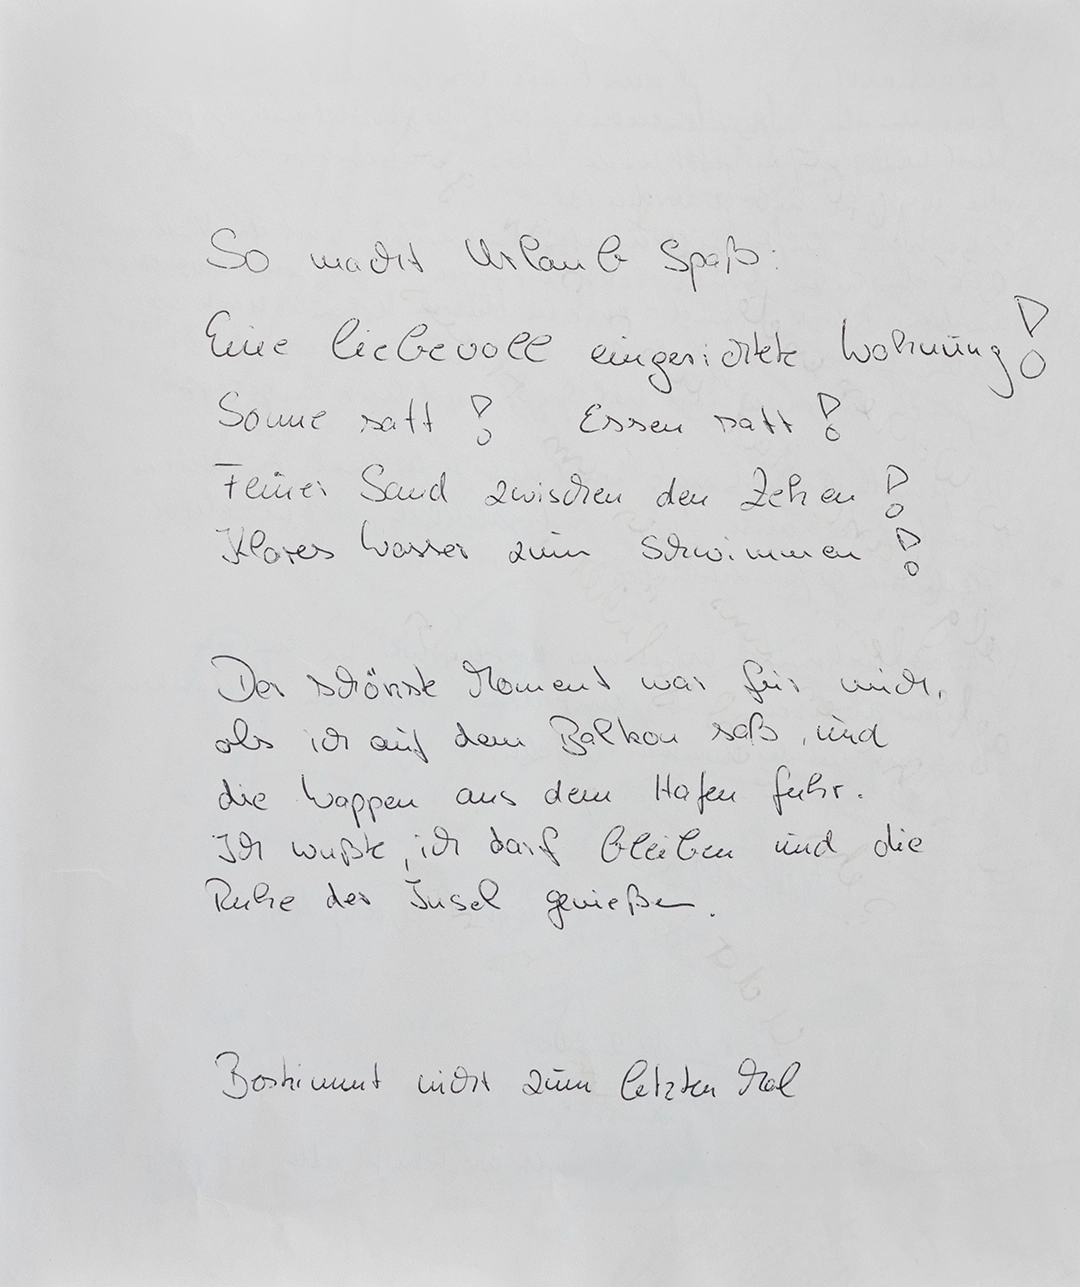 So macht Urlaub Spaß:
Eine liebevoll eingerichtete Wohnung!
Sonne satt! Essen satt!
Feiner Sand zwischen den Zehen!
Klares Wasser zum Schwimmen!
Der schönste Moment war für mich,
als ich auf dem Balkon saß, und
die Wappen aus dem Hafen fuhr.
Ich wußte, ich darf bleiben und die
Ruhe der Insel genießen.
Bestimmt nicht zum letzten Mal